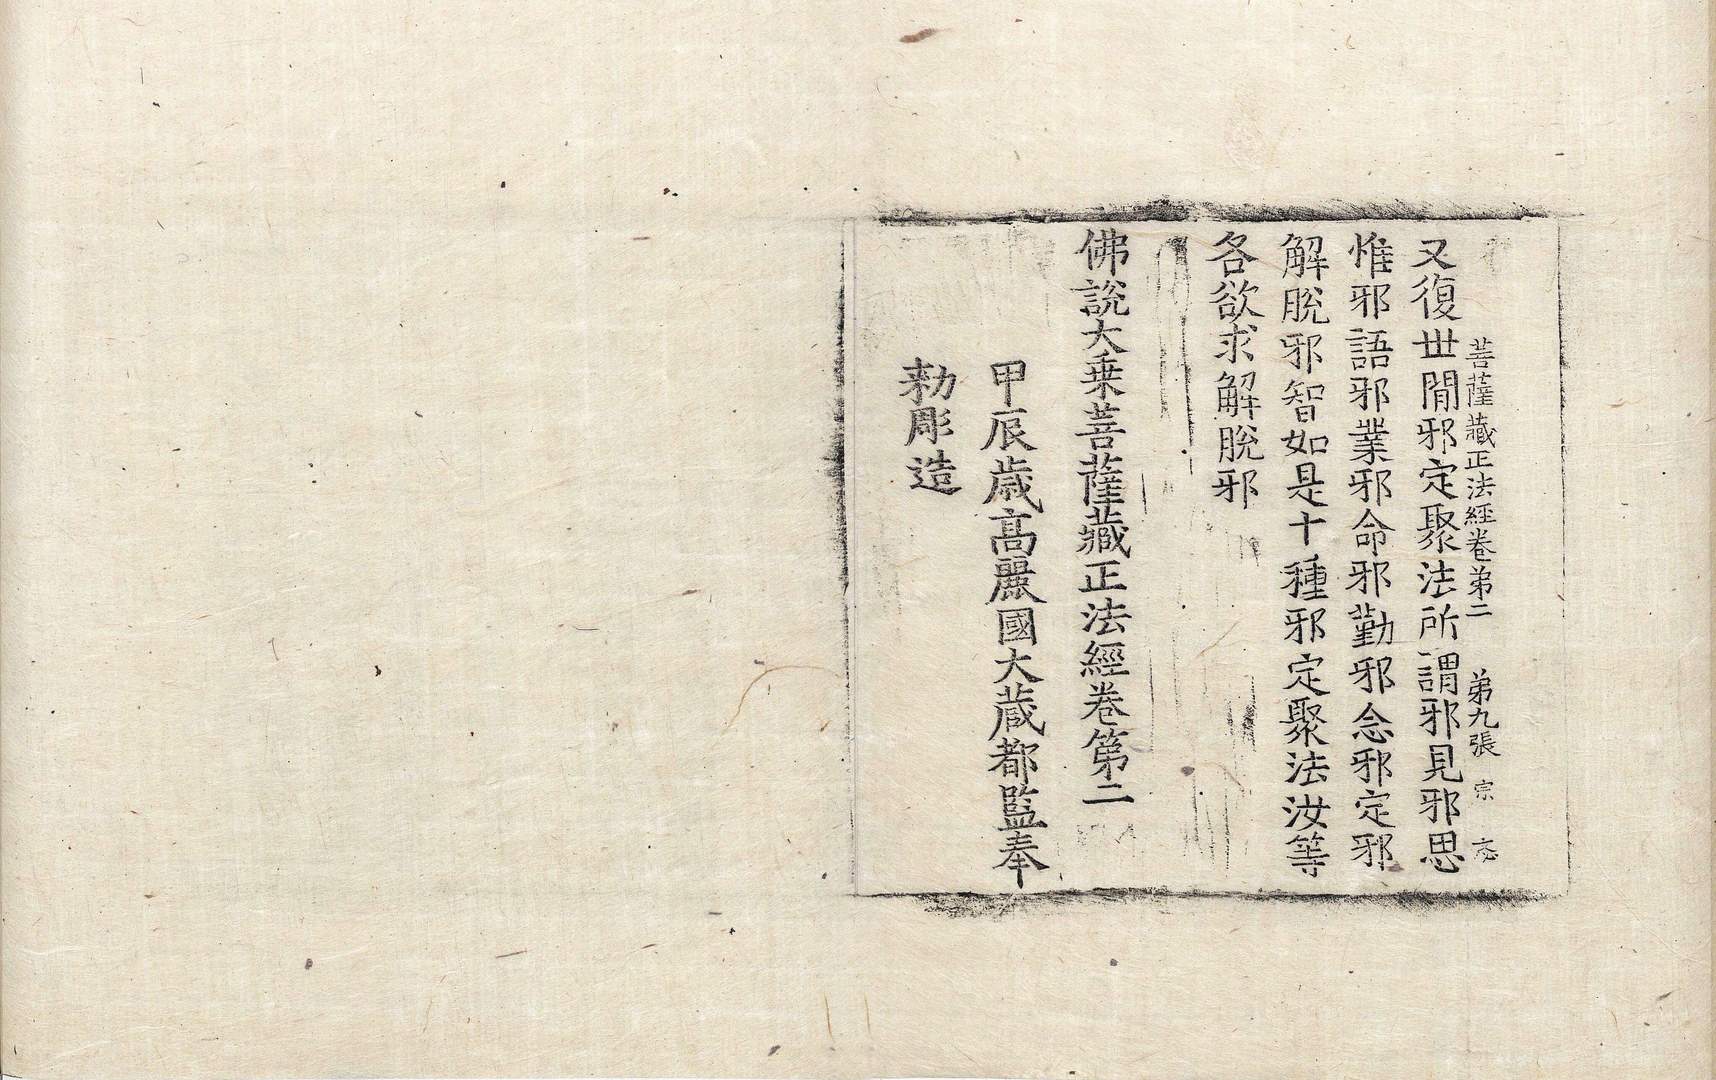 菩薩藏正法經卷第二　第九張　宗
又復世間邪定聚法所謂邪見邪思
惟邪語邪業邪命邪勤邪念邪定邪
解脫邪智如是十種邪定聚法汝等
各欲求解脫邪
佛說大乗菩薩藏正法經卷第二
甲辰歲高麗國大藏都監奉
勅彫造